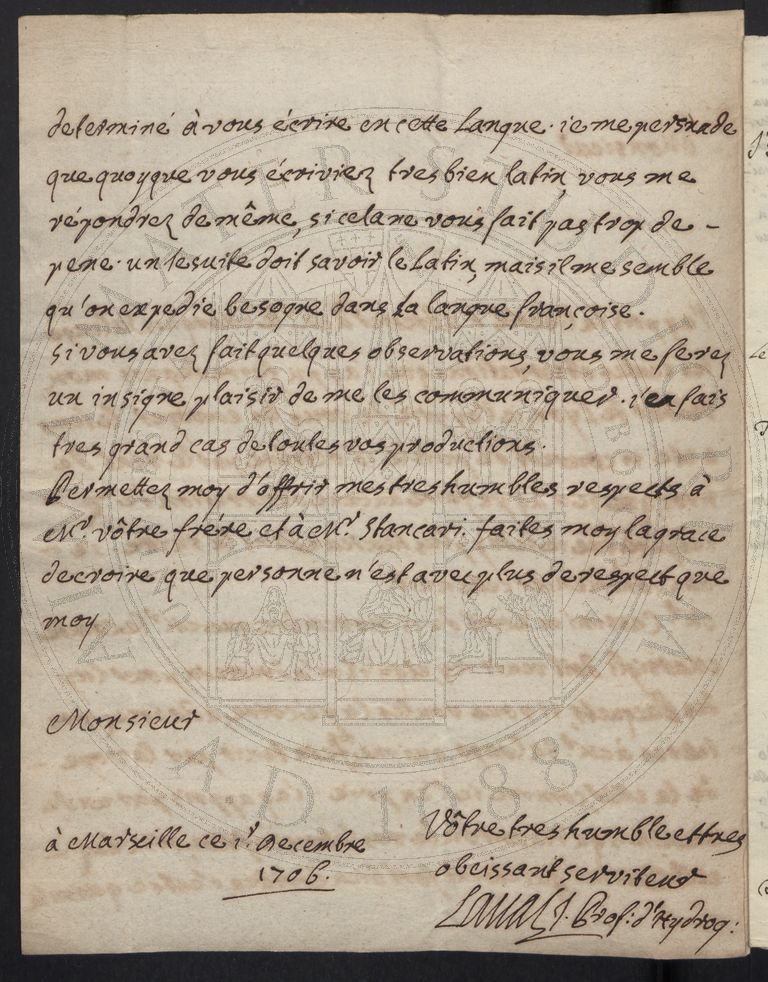 determiné à vous écrire en cette langue. ie me persuade
que quoyque vous écriviez tres bien latin, vous me
répondrez de même, si cela ne vous fait pas trop de -
pene. un Iesuite doit savoir le Latin, mais il me semble
qu'on expedie besogne dans la langue françoise.
si vous avez fait quelques observations, vous me ferez
un insigne plaisir de me les communiquer. i'en fais
tres grand cas de toutes vos productions.
Permettez moy d'offrir mes tres humbles respects à
Mr. vôtre frére et à Mr. Stancari. faites moy la grace
de croire que personne n'est avec plus de respect que
moy
Monsieur
Vôtre tres humble et tres
à Marseille ce 1r. Decembre
obeissant serviteur
1706.
Laval J. Prof: d'Hydrog:
ALMA MATER STUDIORUM
A.D. 1088